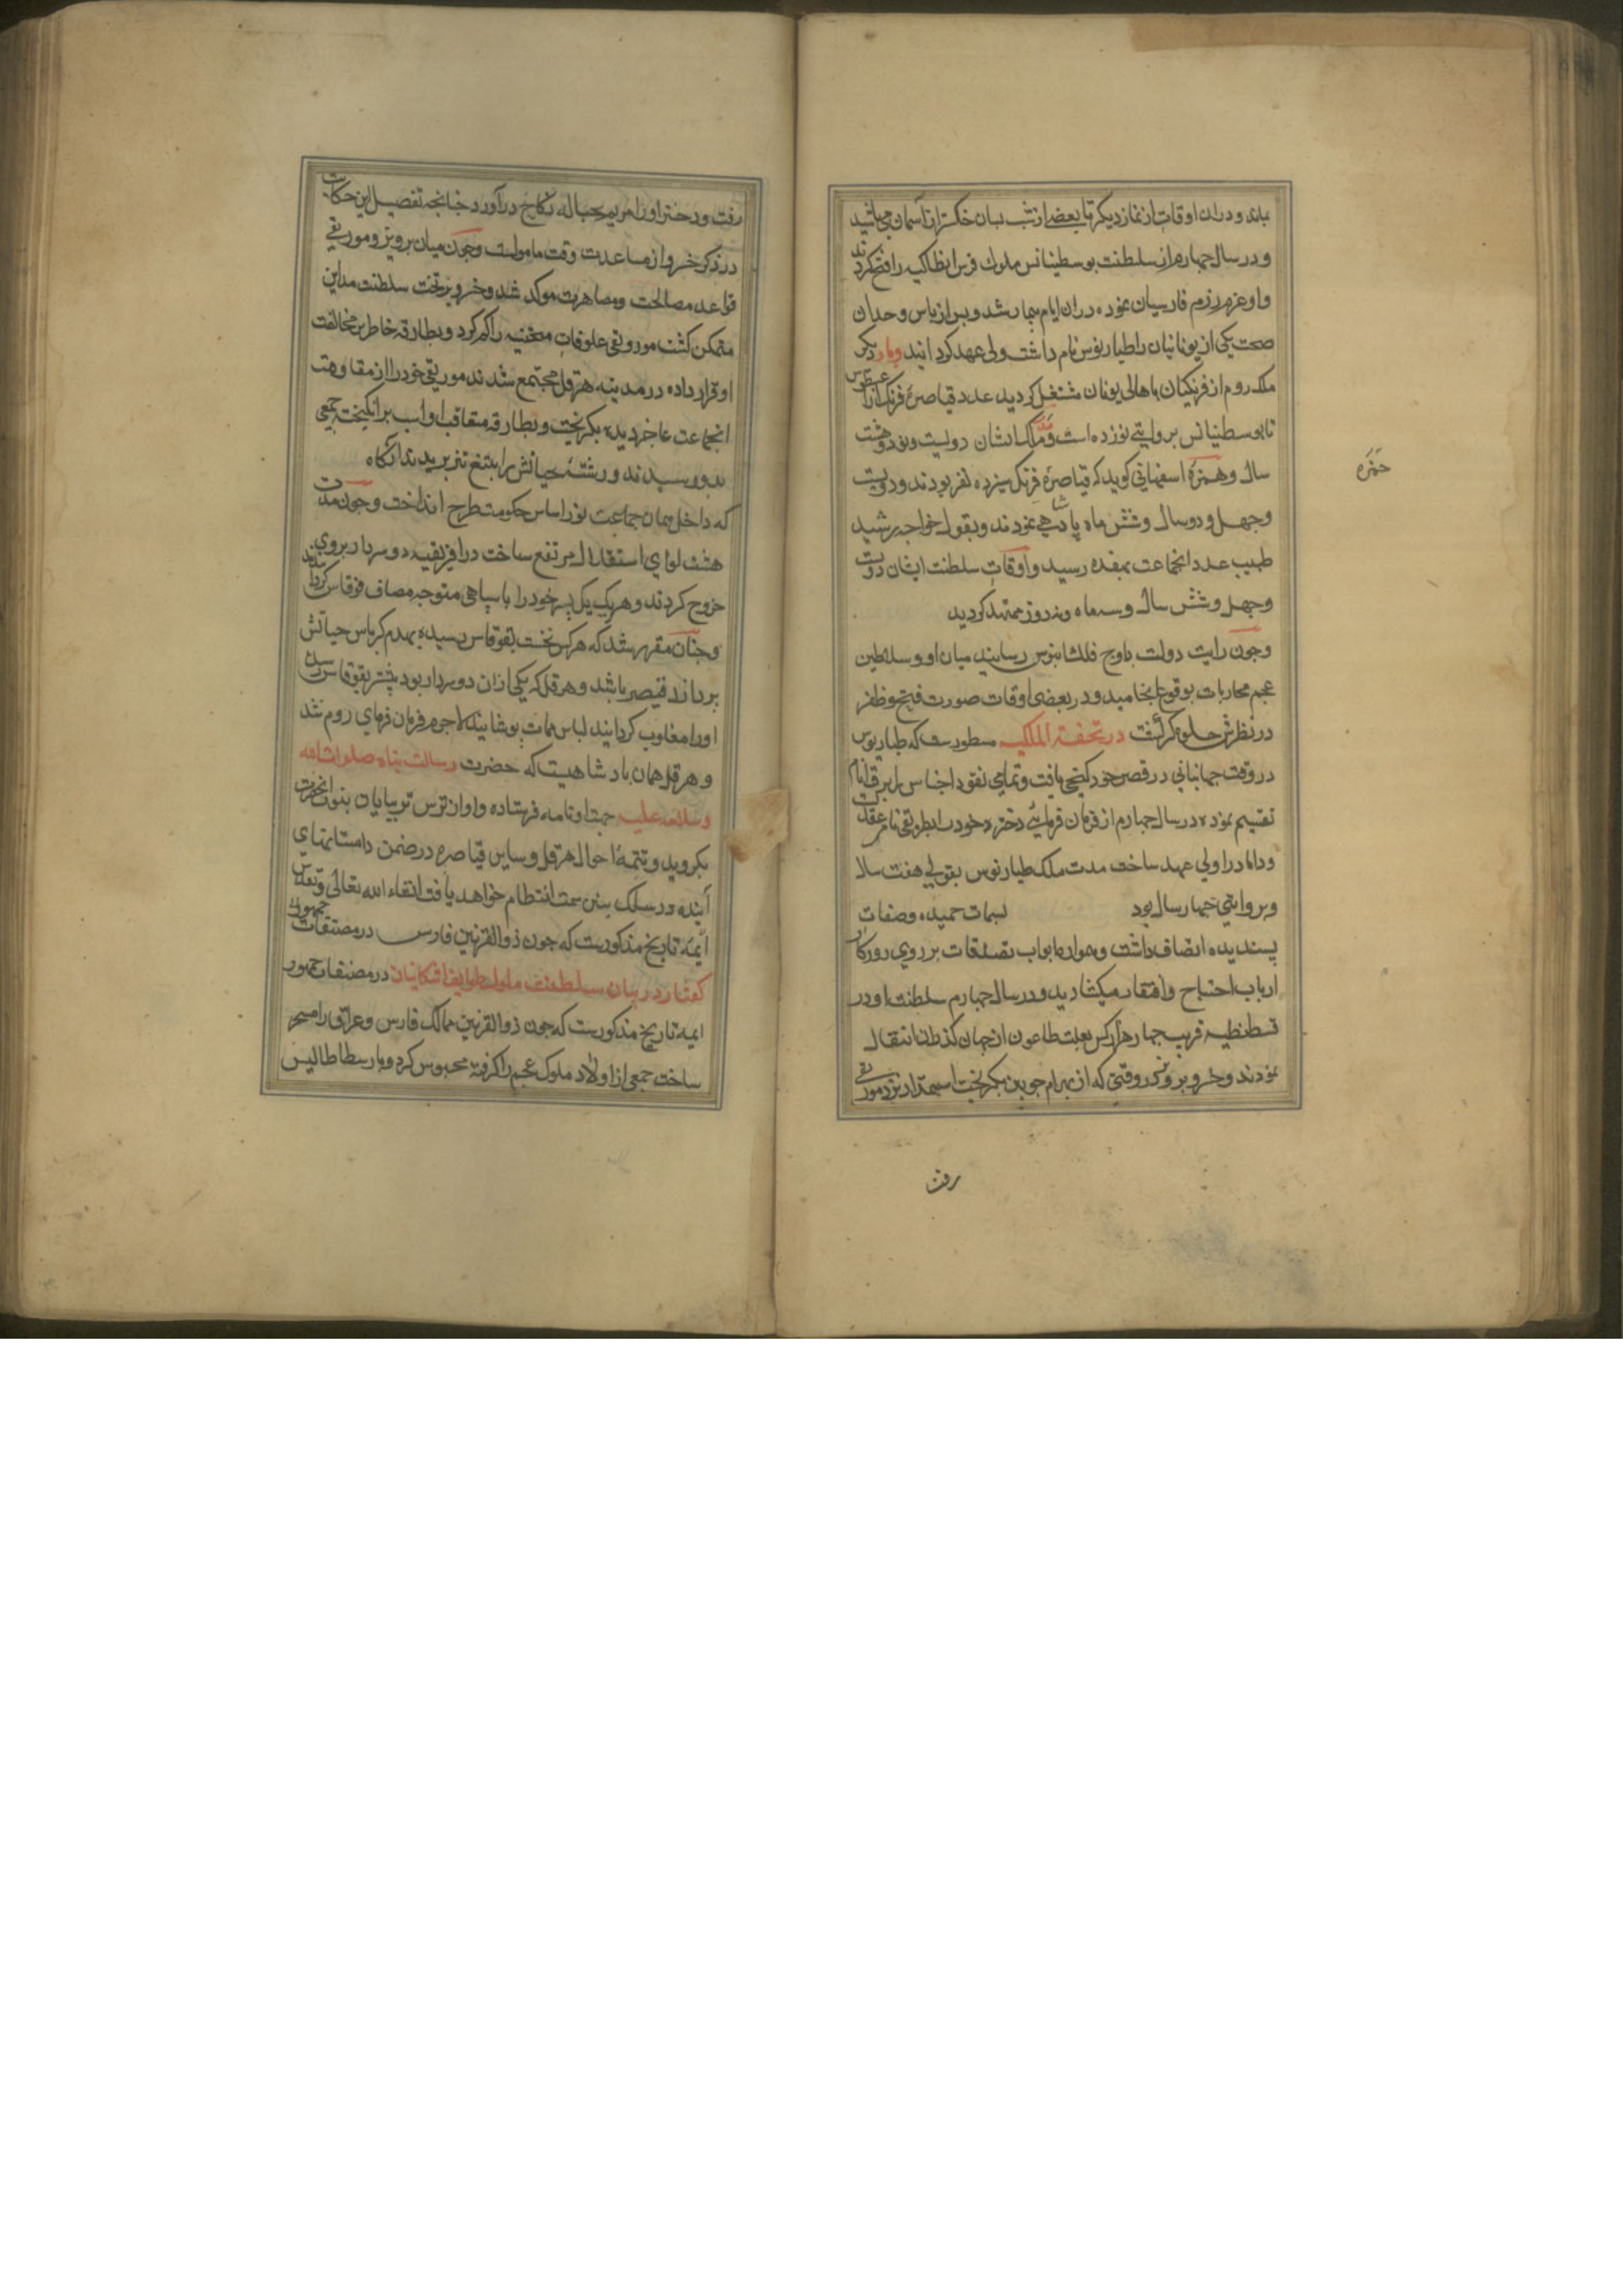 بماند و دران اوقات از نماز دیکر تا بعضی از شب بسان خاکستر از آسمان می پاشید
و در سال چهارم از سلطنت یوسطینانس ملوک فرس انطاکیه را فتح کردند
و او عزم رزم فارسیان نموده دران ایام بیمار شد و پس از یاس وجدان
صحت یکی از یونانیان را طیاریوس نام داشت ولی عهد کردانید و بار دیکر
ملک روم از فرنکیان باهالی یونان منتقل کردید عدد قیاصره فرنک از اغسطس
تا یوسطنیانس بروایتی نوزده است و مدت ملکشان دویست و نود و هشت
سال و حمزه اسفهانی کوید که قیاصره فرنک سیزده نفر بودند و دویست
حمزه
و چهل و دو سال و شش ماه پادشاهی نمودند و بقول خواجه رشید
طبیب عدد انجماعت بهفده رسید و اوقات سلطنت ایشان دویست
و چهل و شش سال و سه ماه و نه روز ممتد کردید
و چون رایت دولت باوج فلک رسانید میان او و سلاطین
عجم محاربات بوقوع انجامید و در بعضی اوقات صورت فتح و ظفر
در نظرش جلوه کر کشت در تحفة الملکیه مسطورست که طیاریوس
در وقت جهانبانی در قصر خود کنجی یافت و تمامی نقود اجناس را بر فقرا
تقسیم نموده در سال چهارم از فرمان فرمائی دختر خود را بموریقی نام عقد بست
و داماد را ولی عهد ساخت مدت ملک طیاریوس بقولی هفت سال
و بروایتی چهار سال بود بسمات حمیده و صفات
پسندیده اتصاف داشت و همواره ابواب تصدقات بر روی روزکار
ارباب احتیاج و افتقار میکشادید و در سال چهارم سلطنت او در
قسطنطیه قریب چهار هزار کس بعلت طاعون از جهان کذران انتقال
نمودند و خسرو پرویز در وقتی که از بهرام چوبین بکریخت نزد موریقی
رفت
رفت و دختر او را مریم بحباله نکاح درآورد چنانچه تفصیل این حکایت
در ذکر خسرو از مساعدت وقت مامولست و چون میان پرویز و موریقی
قواعد مصالحت و مصاهرت موکد شد و خسرو بر تخت سلطنت مداین
متمکن کشت موریقی علوفات را کم کرد و بطارقه خاطر بر مخالفت
او قرار داده در مدینه هرقل مجتمع شدند موریقی خود را از مقاومت
انجماعت عاجز دیده بکریخت و بطارقه متعاقب او اسب برانکیخته جمعی
بدو رسیدند و رشته حیاتش را بتیغ تیز بریدند آنکاه
که داخل همان جماعت بود اساس حکومت طرح انداخت و چون مدت
هشت لوای استقلال مرتفع ساخت در افریقیه دو سردار بروی
خروج کردند و هر یک یک پسر خود را با سپاهی متوجه مصاف فوقاس کردانیدند
و چنان مقرر شد که هر کس نخست بفوقاس رسیده بهدم کریاس حیاتش
پردازد قیصر باشد و هرقل که یکی ازان دو سردار بود پیشتر بفوقاس رسیده
او را مغلوب کردانید لباس ممات پوشانید لاجرم فرمان فرمای روم شد
و هرقل همان پادشاهیست که حضرت رسالت پناه صلوات الله
وسلامه علیه جهت او نامه فرستاده و او از ترس ترسایان بنبوت انحضرت
بکروید و تتمه احوال هرقل و سایر قیاصره در ضمن داستانهای
آینده در سلک سنین سمت انتظام خواهد یافت انشاء الله تعالی و تقدس
ائمه تاریخ مذکورست که چون ذوالقرنین فارس در مصنفات جمهور
کفتار در بیان سلطنت ملوک طوایف اشکانیان در مصنفات جمهور
ایمه تاریخ مذکورست که چون ذوالقرنین ممالک فارس و عراق را مسخر
ساخت جمعی از اولاد ملوک عجم را کرفته محبوس کرد و بارسطاطالیس